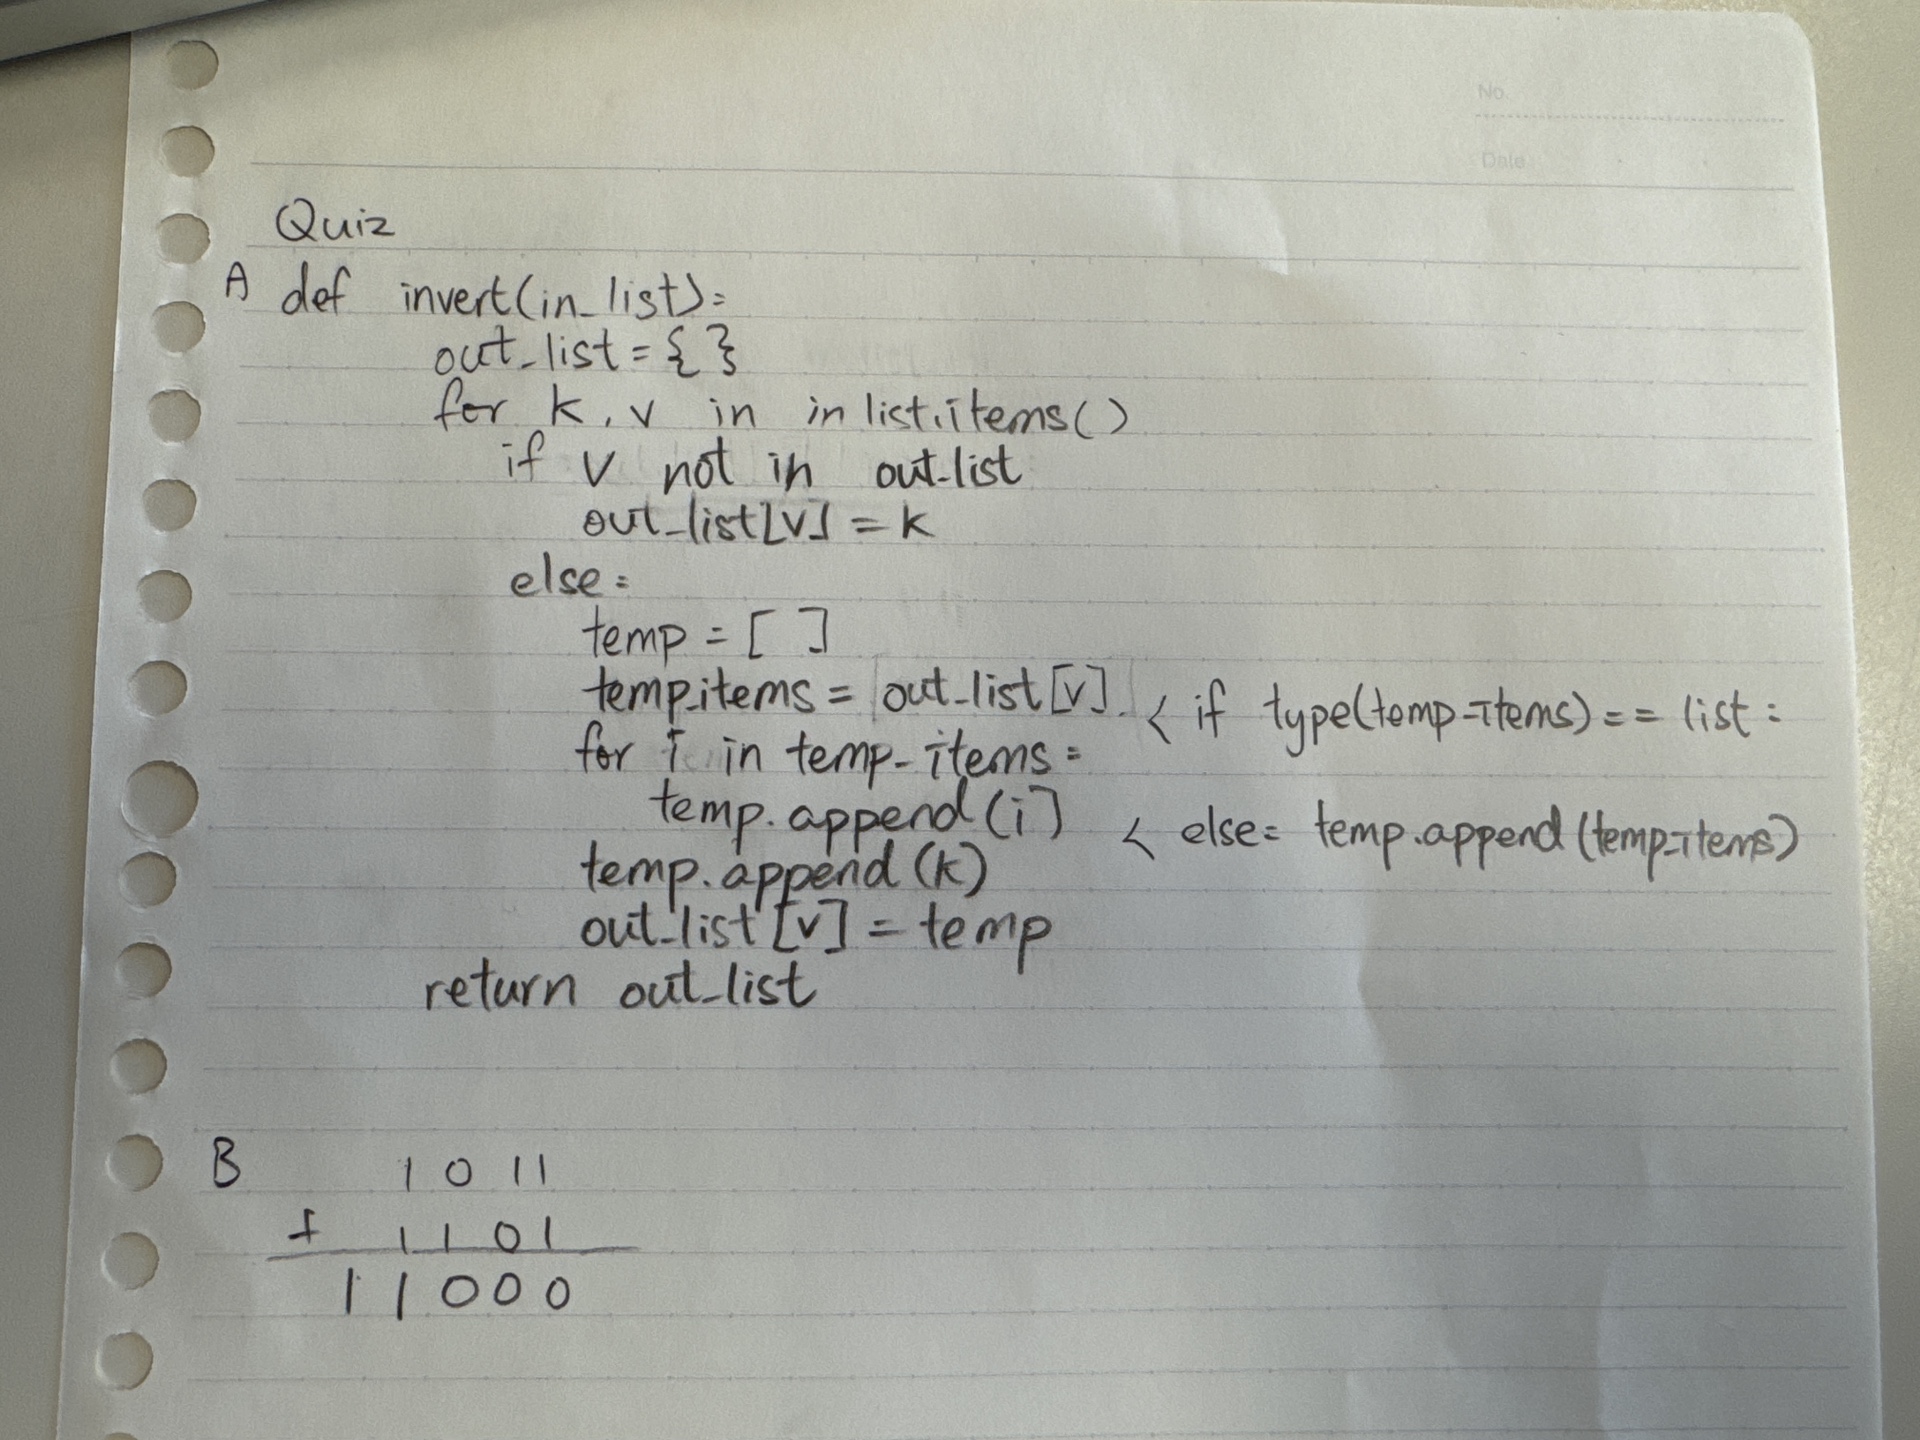 No.
Date
Quiz
A def invert(in_list):
out_list = { }
for k, v in in list.items()
if v not in out_list
out_list[v] = k
else:
temp = [ ]
temp_items = out_list[v] < if type(temp_items) == list:
for i in temp_items:
temp.append(i] < else: temp.append(temp_items)
temp.append(k)
out_list[v] = temp
return out_list
B 1 0 1 1
+ 1 1 0 1
1 1 0 0 0